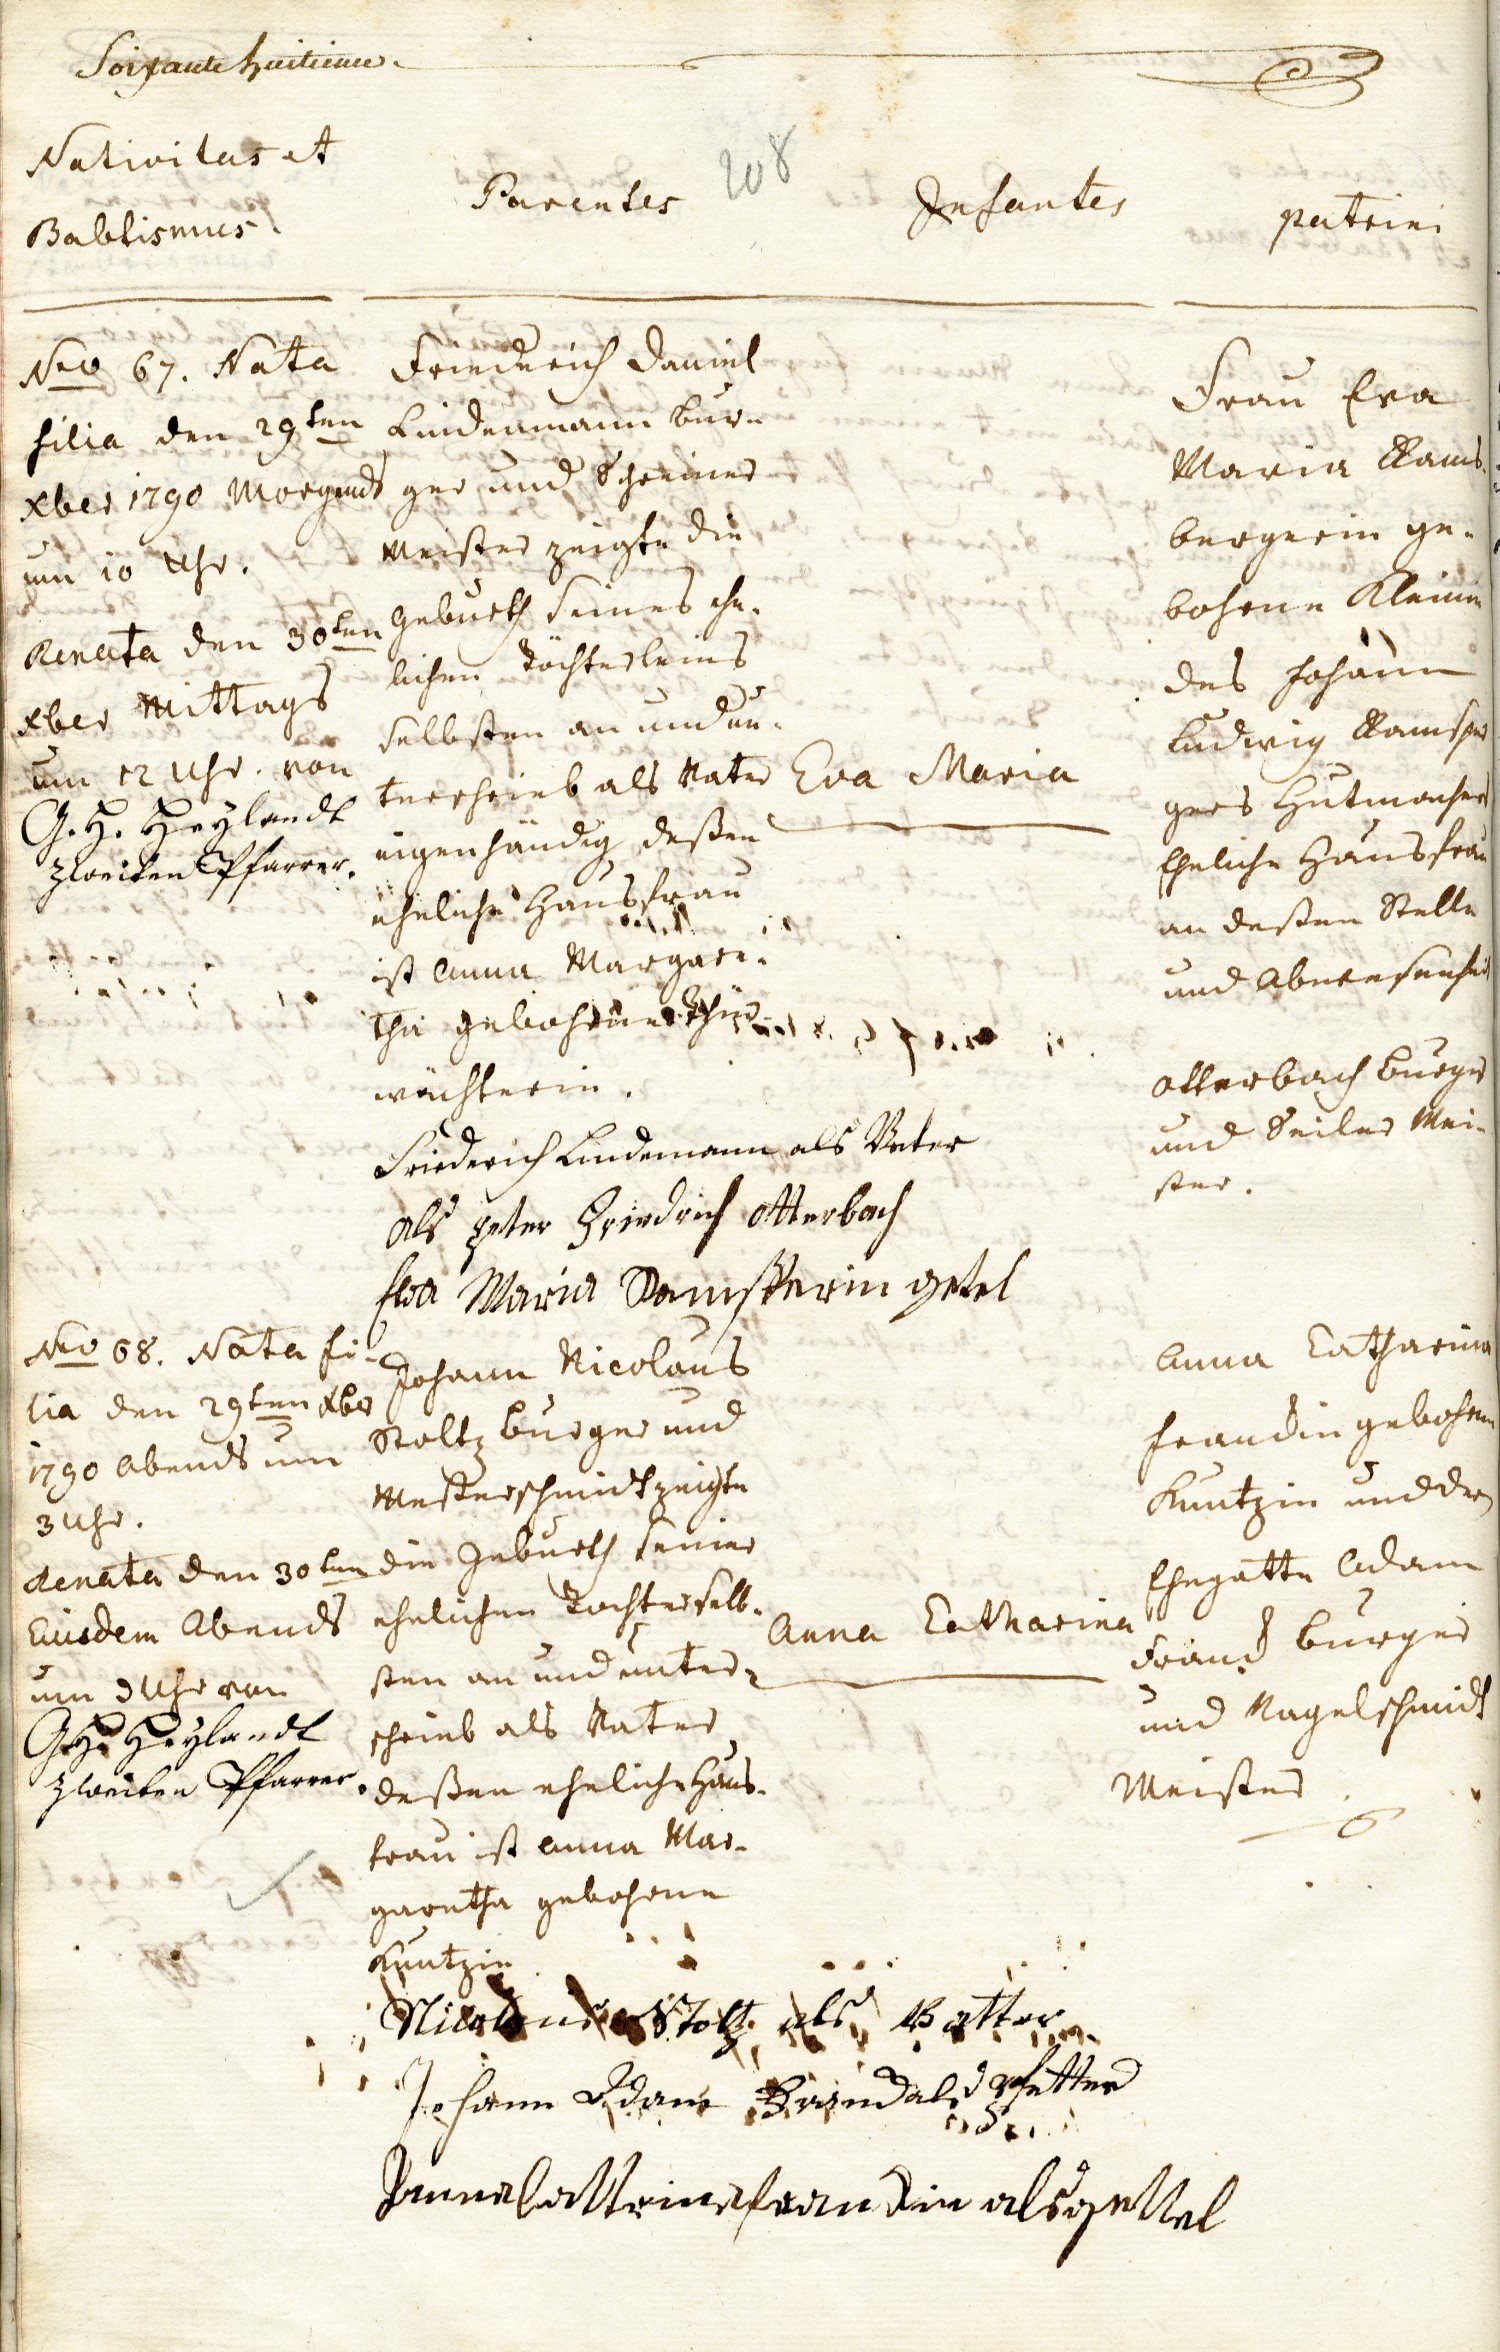 Soixante huitieme.
208
Nativitas et
Babtismus
Parentes
Infantes
patrini
Nro 67. Nata
filia den 29ten
Xber 1790 Morgends
um 10 Uhr.
Renata den 30ten
Xber Mittags
um 12 Uhr. von
G. H. Heylandt
zweiten Pfarrer.
Friederich Daniel
Lindenmann Bur-
ger und Schreiner
Meister zeigte die
Geburth seines ehe-
lichen Töchterleins
selbsten an und un-
terschrieb als Vater
eigenhändig deßen
eheliche Hausfrau
ist Anna Margare-
tha gebohrne Thür-
wächterin.
Eva Maria
Frau Eva
Maria Rams-
bergerin ge-
bohrne Kleinin
des Johann
Ludwig Ramsper
gers Hutmachers
Eheliche Hausfrau
an deßen Stelle
und Abweesenheit
Otterbach Burger
und Seiler Mei-
ster.
Friederich Lindemann als Vater
als peter Friedrich Otterbach
Eva Maria Ramsperrin getel
Nro 68. Nata fi-
lia den 29ten Xber
1790 Abends um
3 Uhr.
Renata den 30ten
Eiusdem Abends
um 3 Uhr von
G. H. Heylandt
zweiten Pfarrer.
Johann Nicolaus
Stoltz Burger und
Messerschmidt zeigte
die Geburth seiner
ehelichen Tochter selb-
sten an und unter-
schrieb als Vater
deßen eheliche Haus-
frau ist Anna Mar-
garetha gebohrne
Kuntzin
Anna Catharina
Anna Catharina
Frandin gebohrne
Kuntzin und der
Ehegatte Adam
Frand Burger
und Nagelschmidt
Meister.
Nicolaus Stoltz als Vatter
Johann Adam Brand als Pfetter
Anna Cattrina frandin als gettel